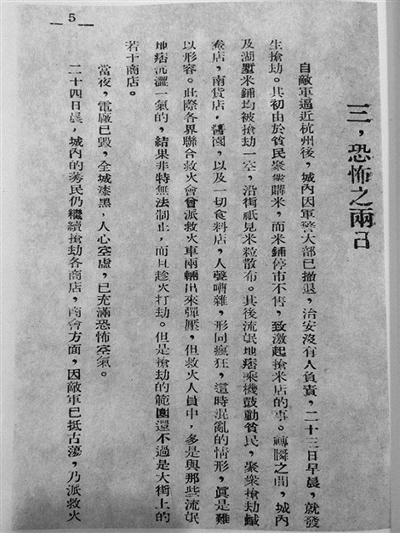 5
三，恐怖之兩日
自敵軍逼近杭州後，城內因軍警大部已撤退，治安沒有人負責，二十三日早晨，就發
生搶劫。其初由於貧民聚衆購米，而米鋪停市不售，致激起搶米店的事。轉瞬之間，城內
及湖墅米鋪均被搶劫一空，沿街祇見米粒散布。其後流氓地痞乘機鼓動貧民，聚衆搶劫鹹
鯗店，南貨店，醬園，以及一切食料店，人聲嘈雜，形同瘋狂，這時混亂的情形，眞是難
以形容。此際各界聯合救火會曾派救火車兩輛出來彈壓，但救火人員中，多是與那些流氓
地痞沆瀣一氣的，結果非特無法制止，而且趁火打劫。但是搶劫的範圍還不過是大街上的
若干商店。
當夜，電廠已毀，全城漆黑，人心空虛，已充滿恐怖空氣。
二十四日晨，城內的莠民仍繼續搶劫各商店，商會方面，因敵軍已抵古蕩，乃派救火